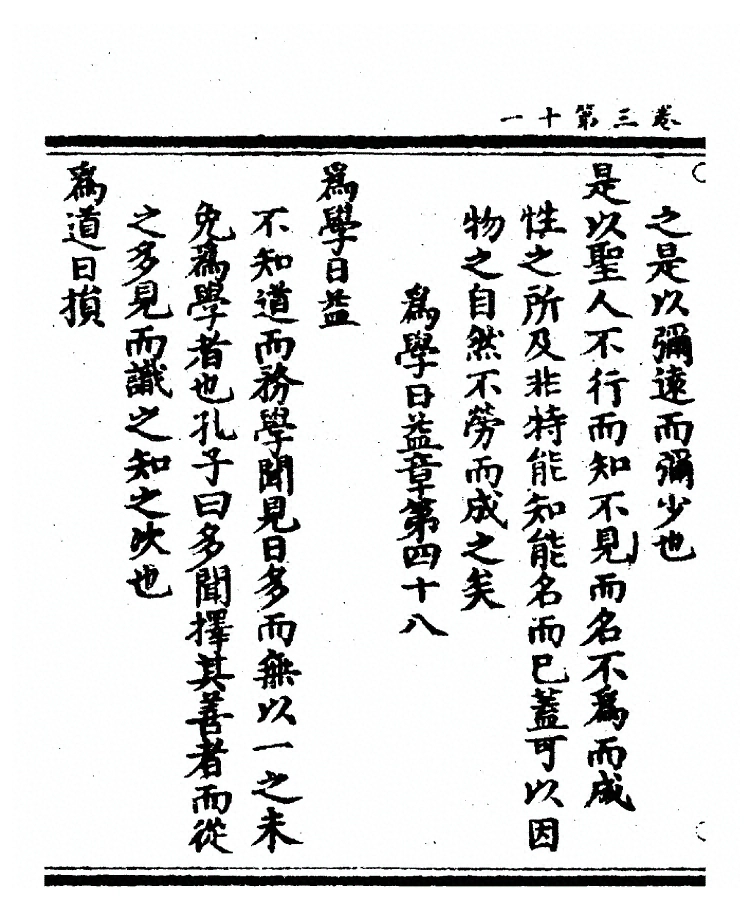 卷三第十一
之是以彌遠而彌少也
是以聖人不行而知不見而名不爲而成
性之所及非特能知能名而已蓋可以因
物之自然不勞而成之矣
爲學日益章第四十八
爲學日益
不知道而務學聞見日多而無以一之未
免爲學者也孔子曰多聞擇其善者而從
之多見而識之知之次也
爲道日損